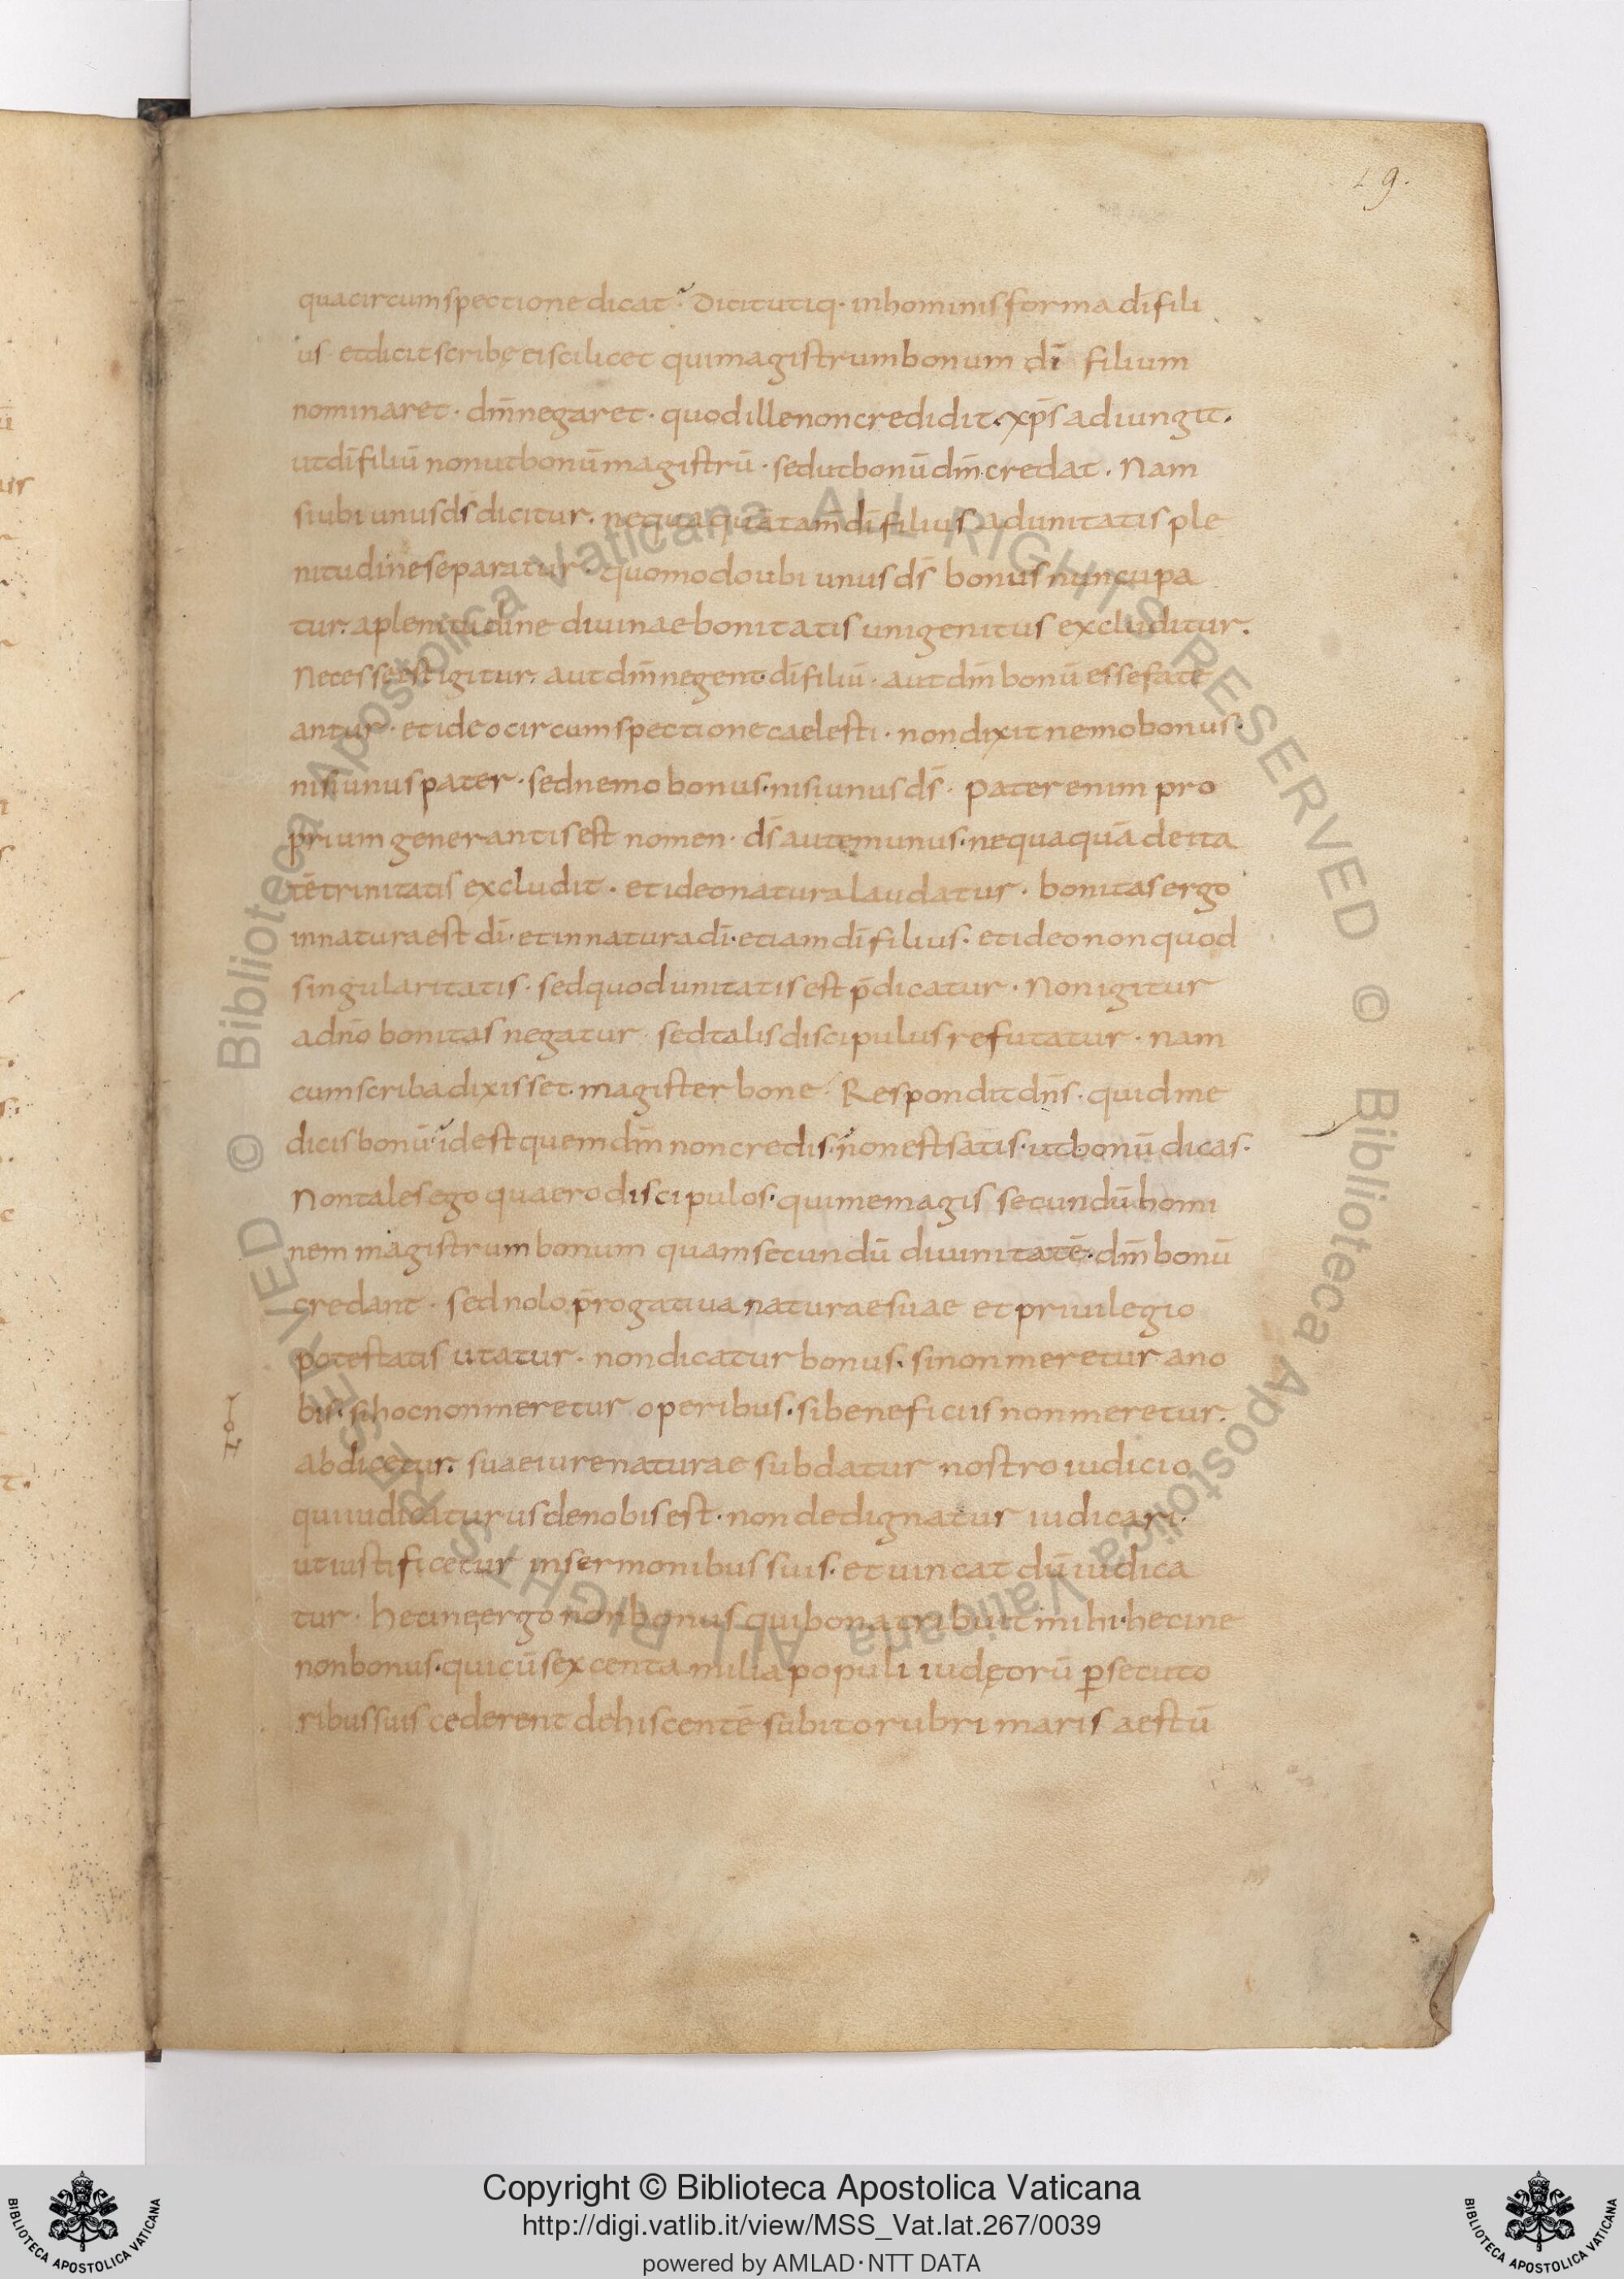 19.
qua circumspectione dicat· Dicit utiq· in hominis forma dī fili
us· et dicit scribę ei scilicet qui magistrum bonum dī filium
nominaret· dm̄ negaret· quod ille non credidit· xp̄s adiungit·
ut dī filiū non ut bonū magistrū· sed ut bonū dm̄ credat· Nam
si ubi unus ds̄ dicitur· nequaquā tam̄ dī filius ad unitatis ple
nitudine separatur· quomodo ubi unus ds̄ bonus nuncupa
tur· a plenitudine diuinae bonitatis unigenitus excluditur·
Necesse est igitur· aut dm̄ negent dī filiū· aut dm̄ bonū esse fate
antur· et ideo circumspectione caelesti· non dixit nemo bonus·
nisi unus pater· sed nemo bonus· nisi unus ds̄· pater enim pro
prium generantis est nomen· ds̄ autem unus· nequaquā deita
tē trinitatis excludit· et ideo natura laudatur· bonitas ergo
in natura est dī· et in natura dī· etiam dī filius· et ideo non quod
singularitatis· sed quod unitatis est p̄dicatur· Non igitur
a dn̄o bonitas negatur· sed talis discipulus refutatur· nam
cum scriba dixisset· magister bone· Respondit dn̄s· quid me
dicis bonū· id est quem dm̄ non credis· non est satis· ut bonū dicas·
Non tales ego quaero discipulos· qui me magis secundū homi
nem magistrum bonum quam secundū diuinitatē· dm̄ bonū
credant· sed nolo p̄rogatiua naturae suae et priuilegio
potestatis utatur· non dicatur bonus· si non meretur a no
bis· si hoc non meretur operibus· si beneficiis non meretur·
abdicetur· suae iure naturae subdatur nostro iudicio
qui iudicaturus de nobis est· non dedignatur iudicari·
ut iustificetur in sermonibus suis· et uincat dū iudica
tur· hecine ergo non bonus qui bona tribuit mihi· hecine
non bonus· qui cū sexcenta milia populi iudęorū ꝑsecuto
ribus suis cederent dehiscentē subito rubri maris aestū
© Biblioteca Apostolica Vaticana ALL RIGHTS RESERVED © Biblioteca Apostolica Vaticana ALL RIGHTS RESERVED
BIBLIOTECA APOSTOLICA VATICANA
Copyright © Biblioteca Apostolica Vaticana
http://digi.vatlib.it/view/MSS_Vat.lat.267/0039
powered by AMLAD·NTT DATA
BIBLIOTECA APOSTOLICA VATICANA